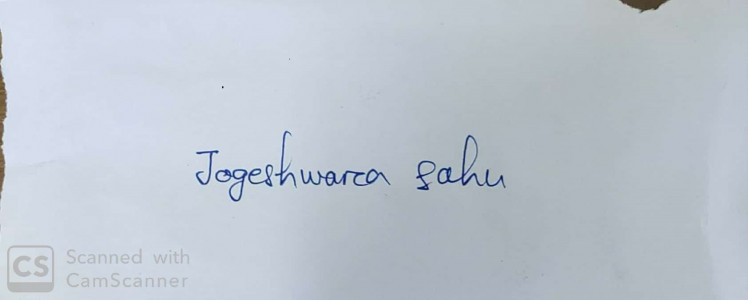 Jogeshwara Sahu
CS Scanned with
CamScanner